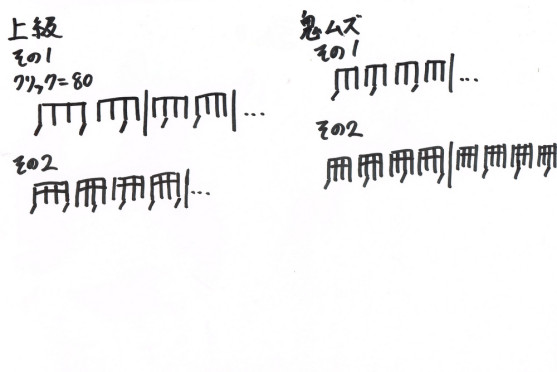 上級
その1
クリック=80
...
その2
...
鬼ムズ
その1
...
その2